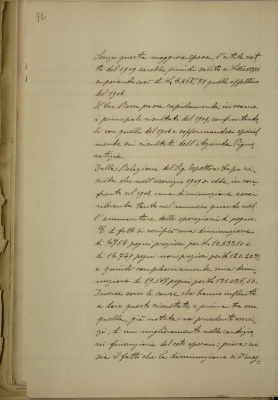 Senza questa maggiore spesa, l'utile net
to del 1909 sarebbe quindi salito a
superando così di L. 6.867,71 quello effettivo
del 1908.
Il Cav. passa rapidamente in esame
i principali risultati del 1909, confrontando
li con quelli del 1908 e soffermandosi special
mente sui risultati dell'Azienda Pigno
ratizia.
Dalla Relazione del Sig. Ispettore Capo ri
sulta che nell'esercizio 1909 si ebbe, in con
fronto al 1908, una diminuzione assai
rilevante tanto nel numero quanto nel
l'ammontare delle operazioni di pegno.
E di fatti si verificò una diminuzione
di 4758 pegni preziosi per L.
di 14.749 pegni non preziosi per L. 120.203;
e quindi complessivamente una dimi
nuzione di 19.507 pegni per L.
Diverse sono le cause che hanno influito
a dare questo risultato, e prima tra esse
quella, già notata nei precedenti eserci
zi, di un miglioramento nelle condizio
ni finanziarie del ceto operaio; prova ne
sia il fatto che la diminuzione si